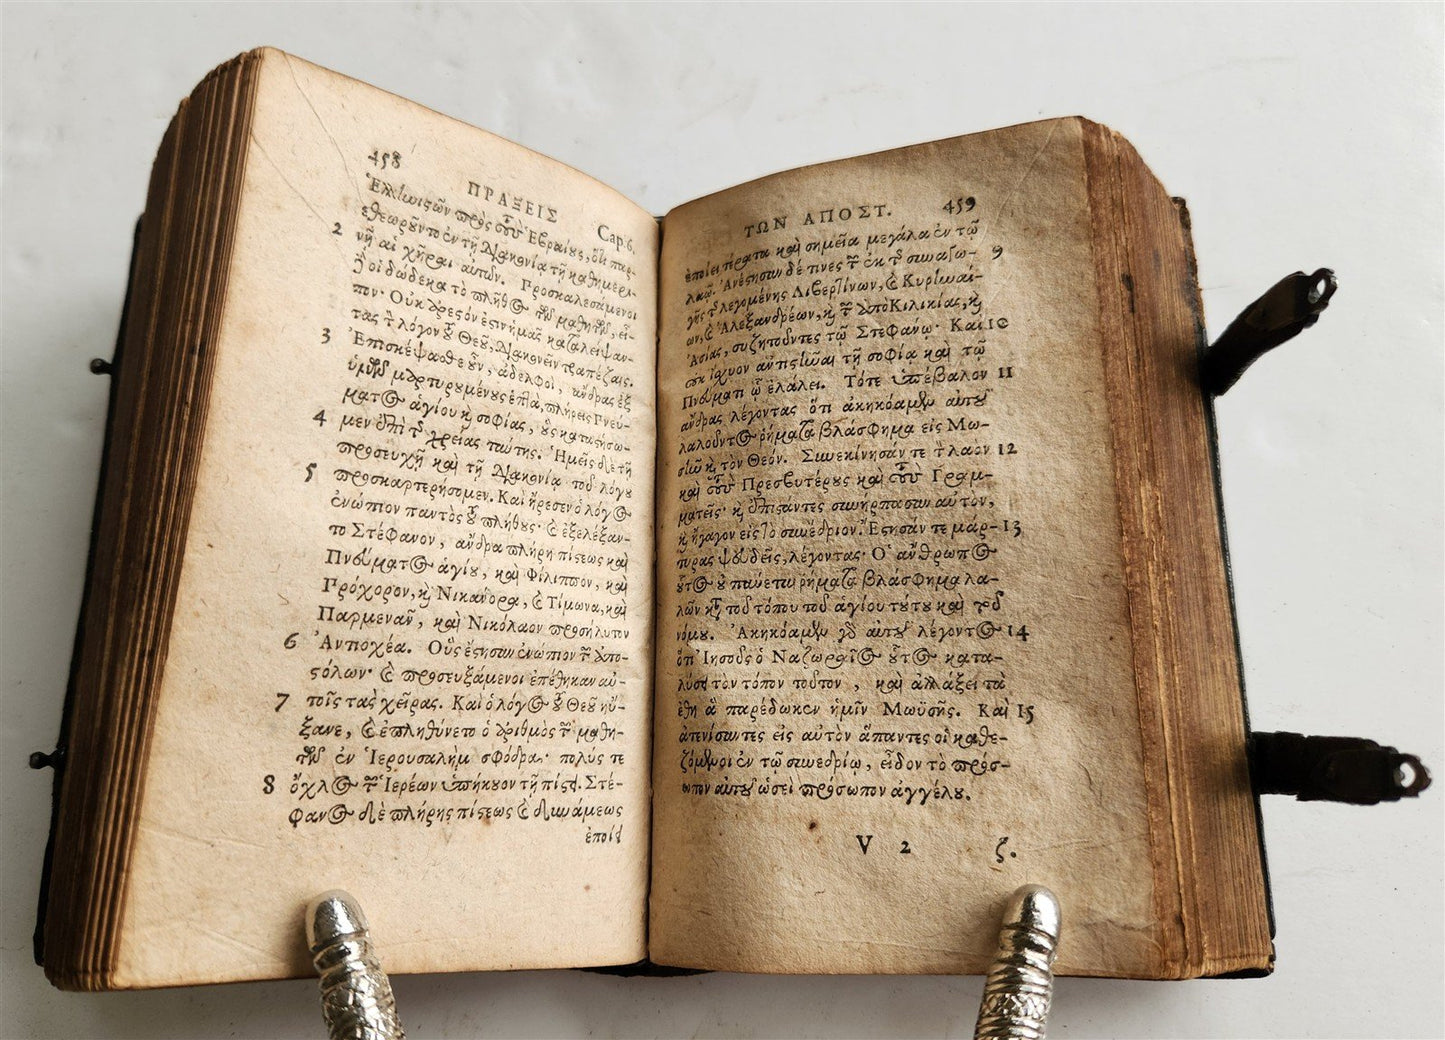 458
ΠΡΑΞΕΙΣ
Cap. 6.
Ἑλληνιστῶν πρὸς τοὺς Ἑβραίους, ὅτι παρ-
εθεωροῦντο ἐν τῇ διακονίᾳ τῇ καθημερι-
2 νῇ αἱ χῆραι αὐτῶν. Προσκαλεσάμενοι
οἱ δώδεκα τὸ πλῆθος τῶν μαθητῶν, εἶ-
πον· Οὐκ ἀρεστόν ἐστιν ἡμᾶς καταλείψαν-
τας τὸν λόγον τοῦ Θεοῦ, διακονεῖν τραπέζαις.
3 Ἐπισκέψασθε οὖν, ἀδελφοί, ἄνδρας ἐξ
ὑμῶν μαρτυρουμένους ἑπτὰ, πλήρεις Πνεύ-
ματος ἁγίου καὶ σοφίας, οὓς καταστήσω-
4 μεν ἐπὶ τῆς χρείας ταύτης. Ἡμεῖς δὲ τῇ
προσευχῇ καὶ τῇ διακονίᾳ τοῦ λόγου
5 προσκαρτερήσομεν. Καὶ ἤρεσεν ὁ λόγος
ἐνώπιον παντὸς τοῦ πλήθους· καὶ ἐξελέξαν-
το Στέφανον, ἄνδρα πλήρη πίστεως καὶ
Πνεύματος ἁγίου, καὶ Φίλιππον, καὶ
Πρόχορον, καὶ Νικάνορα, καὶ Τίμωνα, καὶ
Παρμενᾶν, καὶ Νικόλαον προσήλυτον
6 Ἀντιοχέα. Οὓς ἔστησαν ἐνώπιον τῶν ἀπο-
στόλων· καὶ προσευξάμενοι ἐπέθηκαν αὐ-
7 τοῖς τὰς χεῖρας. Καὶ ὁ λόγος τοῦ Θεοῦ ηὔ-
ξανε, καὶ ἐπληθύνετο ὁ ἀριθμὸς τῶν μαθη-
τῶν ἐν Ἱερουσαλὴμ σφόδρα· πολύς τε
8 ὄχλος τῶν Ἱερέων ὑπήκουον τῇ πίστει. Στέ-
φανος δὲ πλήρης πίστεως καὶ δυνάμεως
ἐποίει
ΤΩΝ ΑΠΟΣΤ.
459
ἐποίει τέρατα καὶ σημεῖα μεγάλα ἐν τῷ
λαῷ. Ἀνέστησαν δέ τινες τῶν ἐκ τῆς συναγω- 9
γῆς τῆς λεγομένης Λιβερτίνων, καὶ Κυρηναί-
ων, καὶ Ἀλεξανδρέων, καὶ τῶν ἀπὸ Κιλικίας, καὶ
Ἀσίας, συζητοῦντες τῷ Στεφάνῳ· Καὶ 10
οὐκ ἴσχυον ἀντιστῆναι τῇ σοφίᾳ καὶ τῷ
Πνεύματι ᾧ ἐλάλει. Τότε ὑπέβαλον 11
ἄνδρας λέγοντας ὅτι ἀκηκόαμεν αὐτοῦ
λαλοῦντος ῥήματα βλάσφημα εἰς Μω-
σῆν καὶ τὸν Θεόν. Συνεκίνησάν τε τὸν λαὸν 12
καὶ τοὺς Πρεσβυτέρους καὶ τοὺς Γραμ-
ματεῖς· καὶ ἐπιστάντες συνήρπασαν αὐτὸν,
καὶ ἤγαγον εἰς τὸ συνέδριον. Ἔστησάν τε μάρ- 13
τυρας ψευδεῖς, λέγοντας· Ὁ ἄνθρωπος
οὗτος οὐ παύεται ῥήματα βλάσφημα λα-
λῶν κατὰ τοῦ τόπου τοῦ ἁγίου τούτου καὶ τοῦ
νόμου. Ἀκηκόαμεν γὰρ αὐτοῦ λέγοντος 14
ὅτι Ἰησοῦς ὁ Ναζωραῖος οὗτος κατα-
λύσει τὸν τόπον τοῦτον, καὶ ἀλλάξει τὰ
ἔθη ἃ παρέδωκεν ἡμῖν Μωϋσῆς. Καὶ 15
ἀτενίσαντες εἰς αὐτὸν ἅπαντες οἱ καθε-
ζόμενοι ἐν τῷ συνεδρίῳ, εἶδον τὸ πρόσ-
ωπον αὐτοῦ ὡσεὶ πρόσωπον ἀγγέλου.
V 2 ζ.